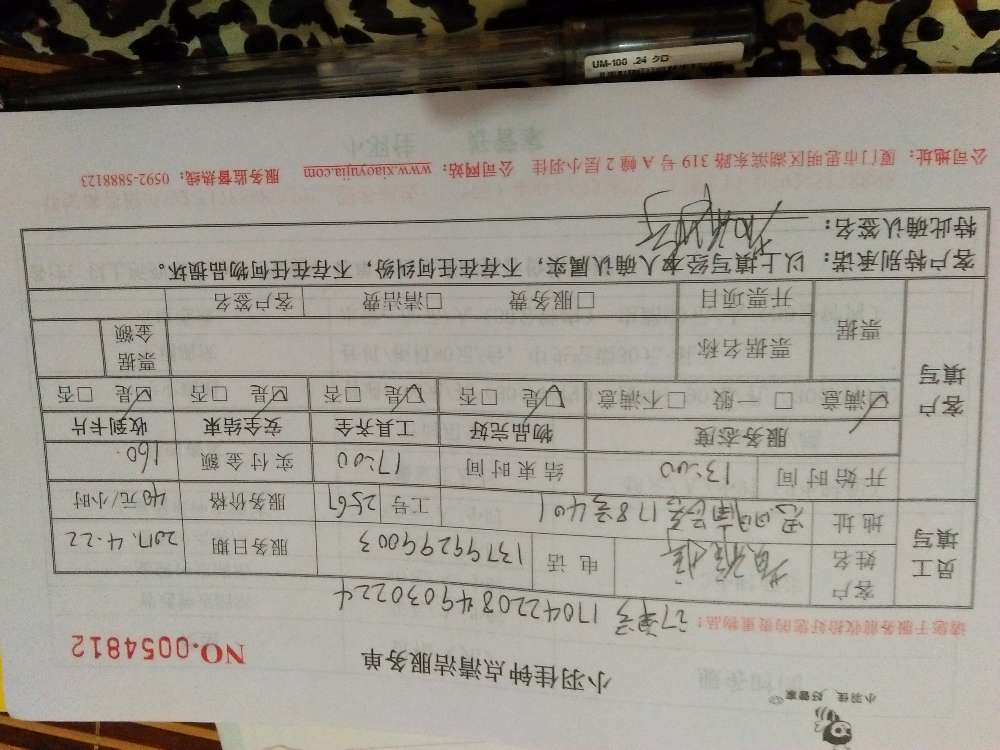 小羽佳 好管家
小羽佳钟点清洁服务单
NO.0054812
请您于服务前收拾好您的贵重物品!
订单号 1704220849030224
员工填写
客户姓名
电话 13799299003
服务日期 2017.4.22
地址
178号401
工号 2561
服务价格 40元/小时
开始时间 13:00 结束时间 17:00 实付金额 160.
客户填写
服务态度 物品完好 工具齐全 安全结束 收到卡片
☑满意 □一般 □不满意 ☑是 □否 ☑是 □否 ☑是 □否 ☑是 □否
票据 票据名称 票据金额
开票项目 □服务费 □清洁费 客户签名
客户特别承诺:以上填写经本人确认属实,不存在任何纠纷,不存在任何物品损坏。
特此确认签名:
公司地址:厦门市思明区湖滨东路 319 号 A 幢 2 层小羽佳 公司网站:www.xiaoyujia.com 服务监督热线:0592-5888123
UM-100 .24 クロ